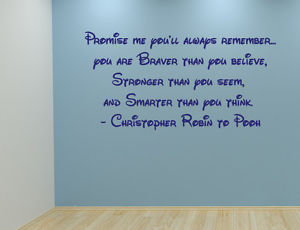 Promise me you'll always remember...
you are Braver than you believe,
Stronger than you seem,
and Smarter than you think.
- Christopher Robin to Pooh